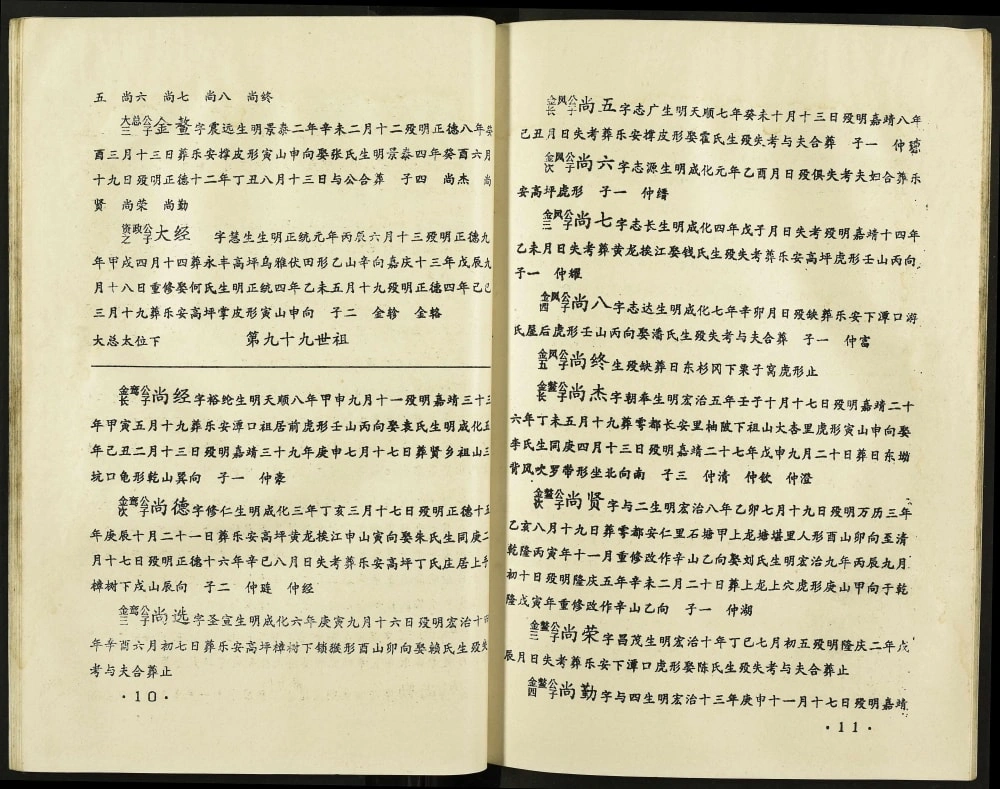 五 尚六 尚七 尚八 尚终
大总公三子金鳌字震远生明景泰二年辛未二月十二殁明正德八年癸
酉三月十三日葬乐安撑皮形寅山申向娶张氏生明景泰四年癸酉六月
十九日殁明正德十二年丁丑八月十三日与公合葬 子四 尚杰 尚
贤 尚荣 尚勤
资政公之子大经 字慧生生明正统元年丙辰六月十三殁明正德九
年甲戌四月十四葬永丰高坪乌鸦伏田形乙山辛向嘉庆十三年戊辰九
月十八日重修娶何氏生明正统四年乙未五月十九殁明正德四年己巳
三月十九葬乐安高坪掌皮形寅山申向 子二 金轸 金辂
大总太位下 第九十九世祖
金鸾公长子尚经字裕纶生明天顺八年甲申九月十一殁明嘉靖三十三
年甲寅五月十九葬乐安潭口祖居前虎形壬山丙向娶袁氏生明成化五
年己丑二月十三日殁明嘉靖三十九年庚申七月十七日葬贤乡祖山三
坑口龟形乾山巽向 子一 仲豪
金鸾公次子尚德字修仁生明成化三年丁亥三月十七日殁明正德十五
年庚辰十月二十一日葬乐安高坪黄龙挨江申山寅向娶朱氏生同庚二
月十七日殁明正德十六年辛巳八月日失考葬乐安高坪丁氏庄居上手
樟树下戌山辰向 子二 仲琏 仲经
金鸾公三子尚选字圣宣生明成化六年庚寅九月十六日殁明宏治十四
年辛酉六月初七日葬乐安高坪樟树下锁猴形酉山卯向娶赖氏生殁失
考与夫合葬止
·10·
金凤公长子尚五字志广生明天顺七年癸未十月十三日殁明嘉靖八年
己丑月日失考葬乐安撑皮形娶霍氏生殁失考与夫合葬 子一 仲琼
金凤公次子尚六字志源生明成化元年乙酉月日殁俱失考夫妇合葬乐
安高坪虎形 子一 仲缙
金凤公三子尚七字志长生明成化四年戊子月日失考殁明嘉靖十四年
乙未月日失考葬黄龙挨江娶钱氏生殁失考葬乐安高坪虎形壬山丙向
子一 仲耀
金凤公四子尚八字志达生明成化七年辛卯月日殁缺葬乐安下潭口游
氏屋后虎形壬山丙向娶潘氏生殁失考与夫合葬 子一 仲富
金凤公五子尚终生殁缺葬日东杉冈下栗子窝虎形止
金鳌公长子尚杰字朝奉生明宏治五年壬子十月十七日殁明嘉靖二十
六年丁未五月十九葬雩都长安里柚陂下祖山大杏里虎形寅山申向娶
李氏生同庚四月十三日殁明嘉靖二十七年戊申九月二十日葬日东坳
背风吹罗带形坐北向南 子三 仲清 仲钦 仲澄
金鳌公次子尚贤字与二生明宏治八年乙卯七月十九日殁明万历三年
乙亥八月十九日葬雩都安仁里石塘甲上龙塘堪里人形酉山卯向至清
乾隆丙寅年十一月重修改作辛山乙向娶刘氏生明宏治九年丙辰九月
初十日殁明隆庆五年辛未二月二十日葬上龙上穴虎形庚山甲向于乾
隆戊寅年重修改作辛山乙向 子一 仲湖
金鳌公三子尚荣字昌茂生明宏治十年丁巳七月初五殁明隆庆二年戊
辰月日失考葬乐安下潭口虎形娶陈氏生殁失考与夫合葬止
金鳌公四子尚勤字与四生明宏治十三年庚申十一月十七日殁明嘉靖
·11·